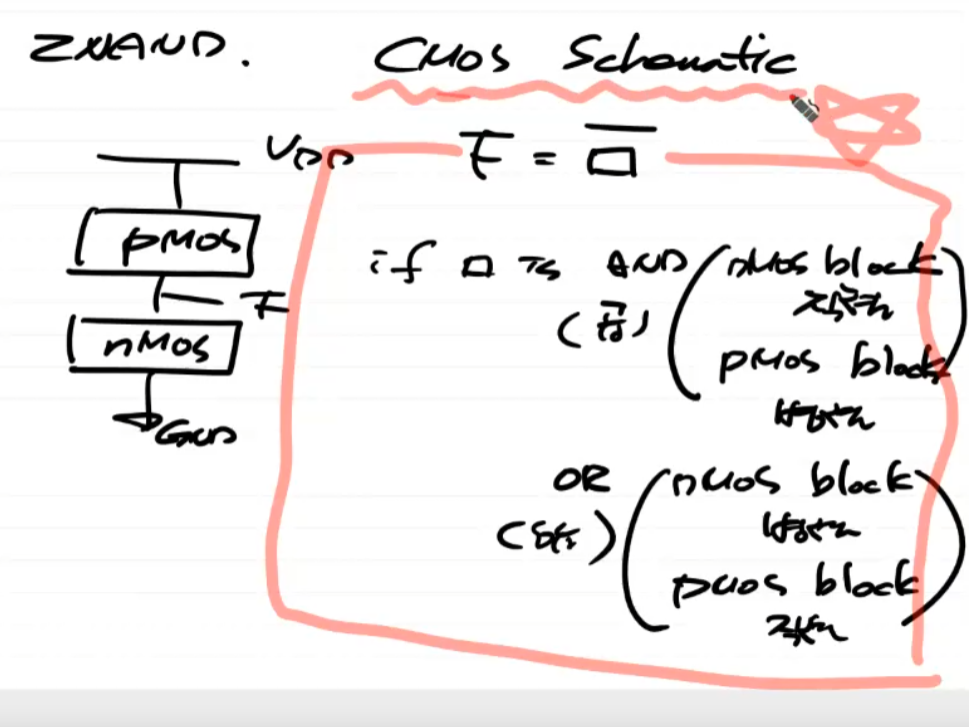 2NAND.
CMOS Schematic
VDD
pMOS
F
nMOS
GND
F = □
if □ is AND
(곱)
nMOS block
직렬
pMOS block
병렬
OR
(합)
nMOS block
병렬
pMOS block
직렬